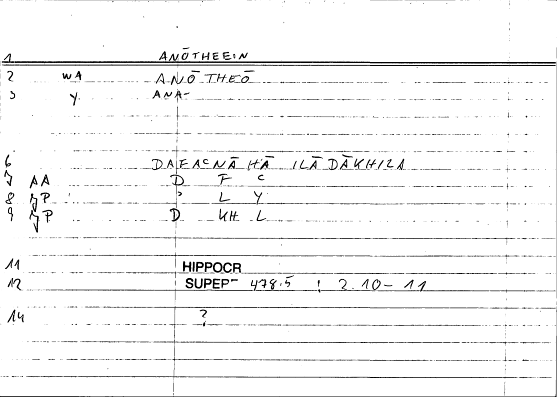 1 ANŌTHEEIN
2 WA ANŌTHEŌ
3 Y ANA-
6 DAFAcNĀHĀ ILĀ DĀKHILA
7 AA D F C
8 JP ʾ L Y
9 JP D KH L
11 HIPPOCR
12 SUPEP- 478.5 ; 2.10-11
14 ?